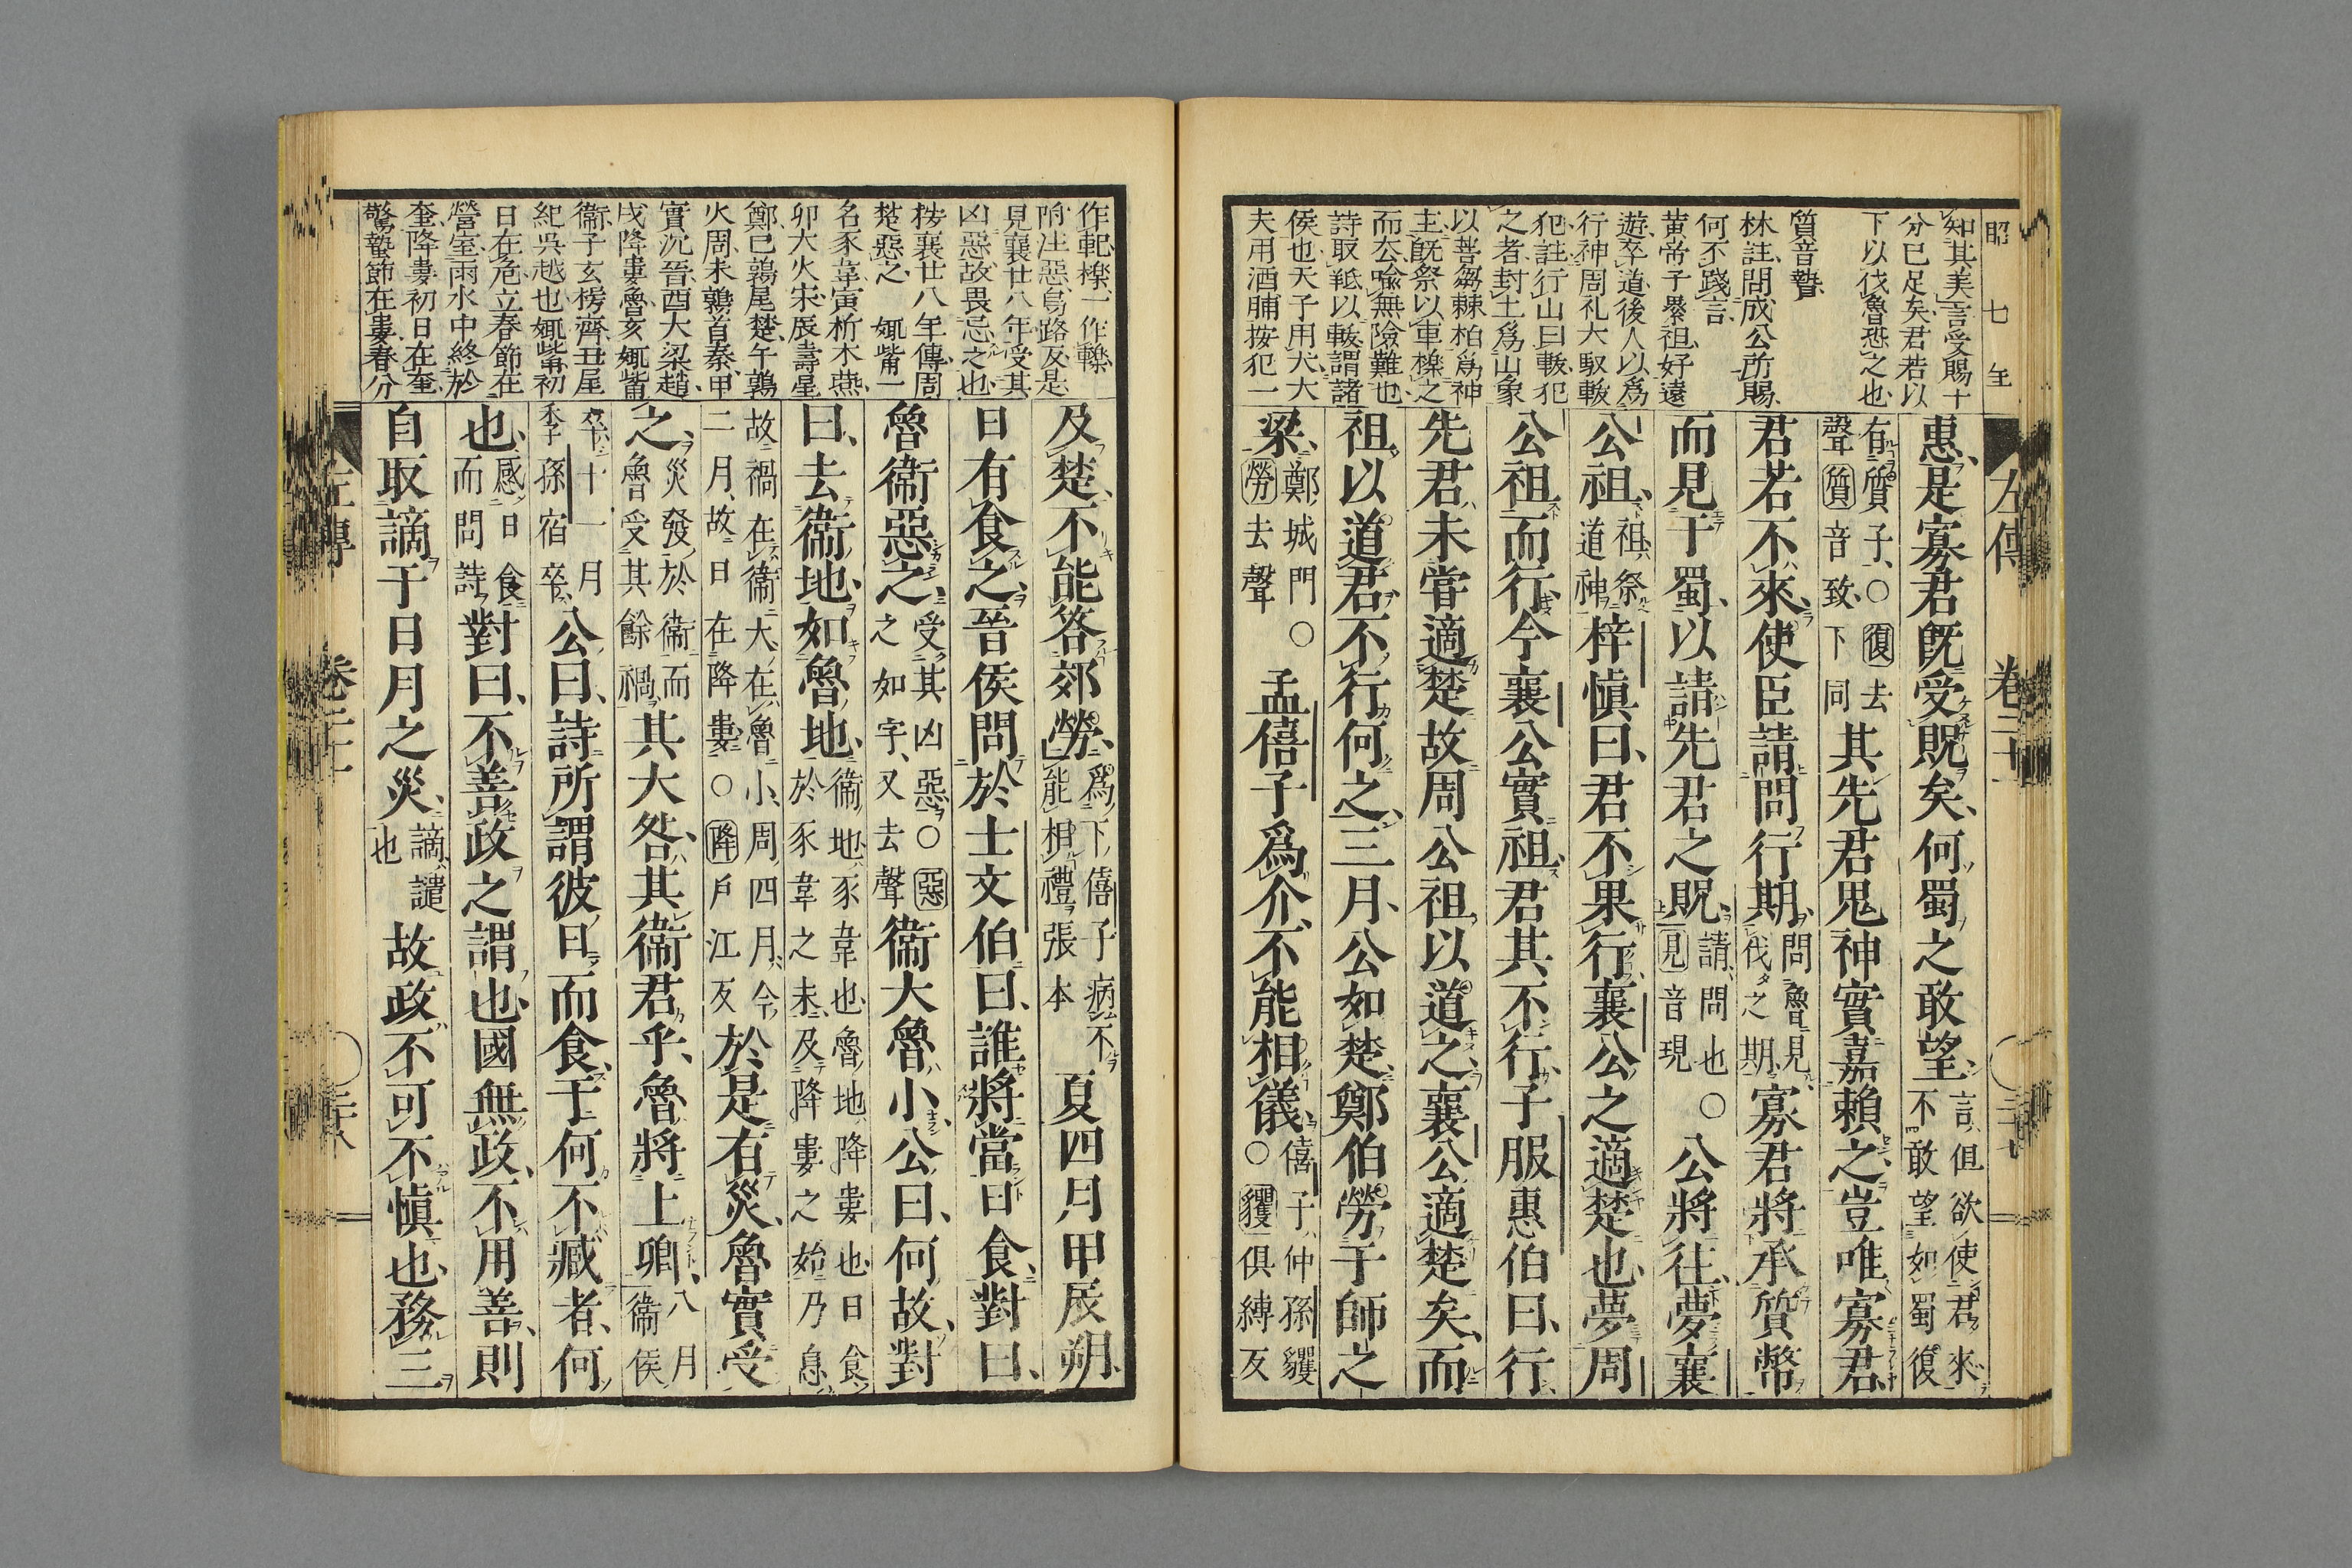 昭 七 年
知其美言受賜十
分已足矣君若以
下以伐魯恐之也
質音贄
林註問成公所賜
何不踐言
黄帝子纍祖好遠
遊卒道後人以爲
行神周礼大馭軷
犯註行山曰軷犯
之者封土爲山象
以菩芻棘柏爲神
主既祭以車轢之
而去喩無險難也
詩取羝以軷謂諸
侯也天子用犬大
夫用酒脯按犯一
惠、是寡君既受貺矣、何蜀之敢望、言俱欲使君來不敢望如蜀復
有質子、○復去聲質音致、下同其先君鬼神實嘉賴之、豈唯寡君、
君若不來、使臣請問行期、問魯見伐之期寡君將承質幣
而見于蜀、以請先君之貺、請問也見音現○公將往、夢襄
公祖、祖祭道神梓愼曰、君不果行、襄公之適楚也、夢周
公祖而行、今襄公實祖、君其不行、子服惠伯曰、行
先君未嘗適楚、故周公祖以道之、襄公適楚矣、而
祖以道君、不行何之、三月、公如楚、鄭伯勞于師之
梁、鄭城門○勞去聲孟僖子爲介、不能相儀、僖子仲孫貜○貜俱縛反
及楚、不能答郊勞、爲下僖子病不能相禮張本夏四月甲辰朔、
日有食之、晉侯問於士文伯曰、誰將當日食、對曰、
魯衞惡之、受其凶惡○惡之如字、又去聲衞大魯小、公曰、何故、對
曰、去衞地、如魯地、衞地豕韋也魯地降婁也日食於豕韋之末及降婁之始乃息
故禍在衞大、在魯小、周四月、今二月、故日在降婁○降戶江反於是有災、魯實受
之、災發於衞而魯受其餘禍其大咎、其衞君乎、魯將上卿、八月衞侯
卒、十一月季孫宿卒、公曰、詩所謂彼日而食、于何不臧者、何
也、感日食而問詩對曰、不善政之謂也、國無政、不用善、則
自取謫于日月之災、謫譴也故政不可不愼也、務三
作範櫟一作轢
附注惡烏路反是
見襄廿八年受其
凶惡故畏忌之也
按襄廿八年傳周
楚惡之 娵訾一
名豕韋寅析木燕
卯大火宋辰壽星
鄭巳鶉尾楚午鶉
火周未鶉首秦申
實沉晉酉大梁趙
戌降婁魯亥娵訾
衞子玄枵齊丑星
紀呉越也娵訾初
日在危立春節在
營室雨水中終於
奎降婁初日在奎
驚蟄節在婁春分